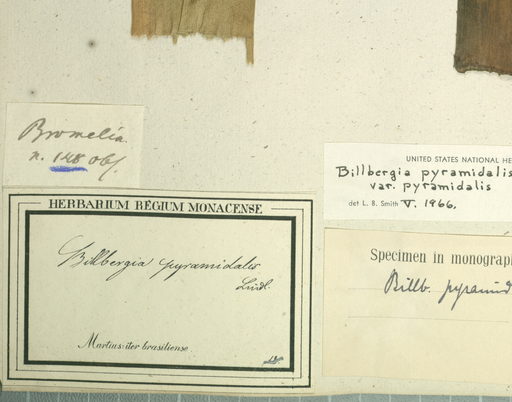 Bromelia.
n. 148 Obs.
HERBARIUM REGIUM MONACENSE.
Billbergia pyramidalis
Lindl.
Martius: iter brasiliense
UNITED STATES NATIONAL HE
Billbergia pyramidalis
var. pyramidalis
det L. B. Smith V. 1966.
Specimen in monograp
Billb. pyramid